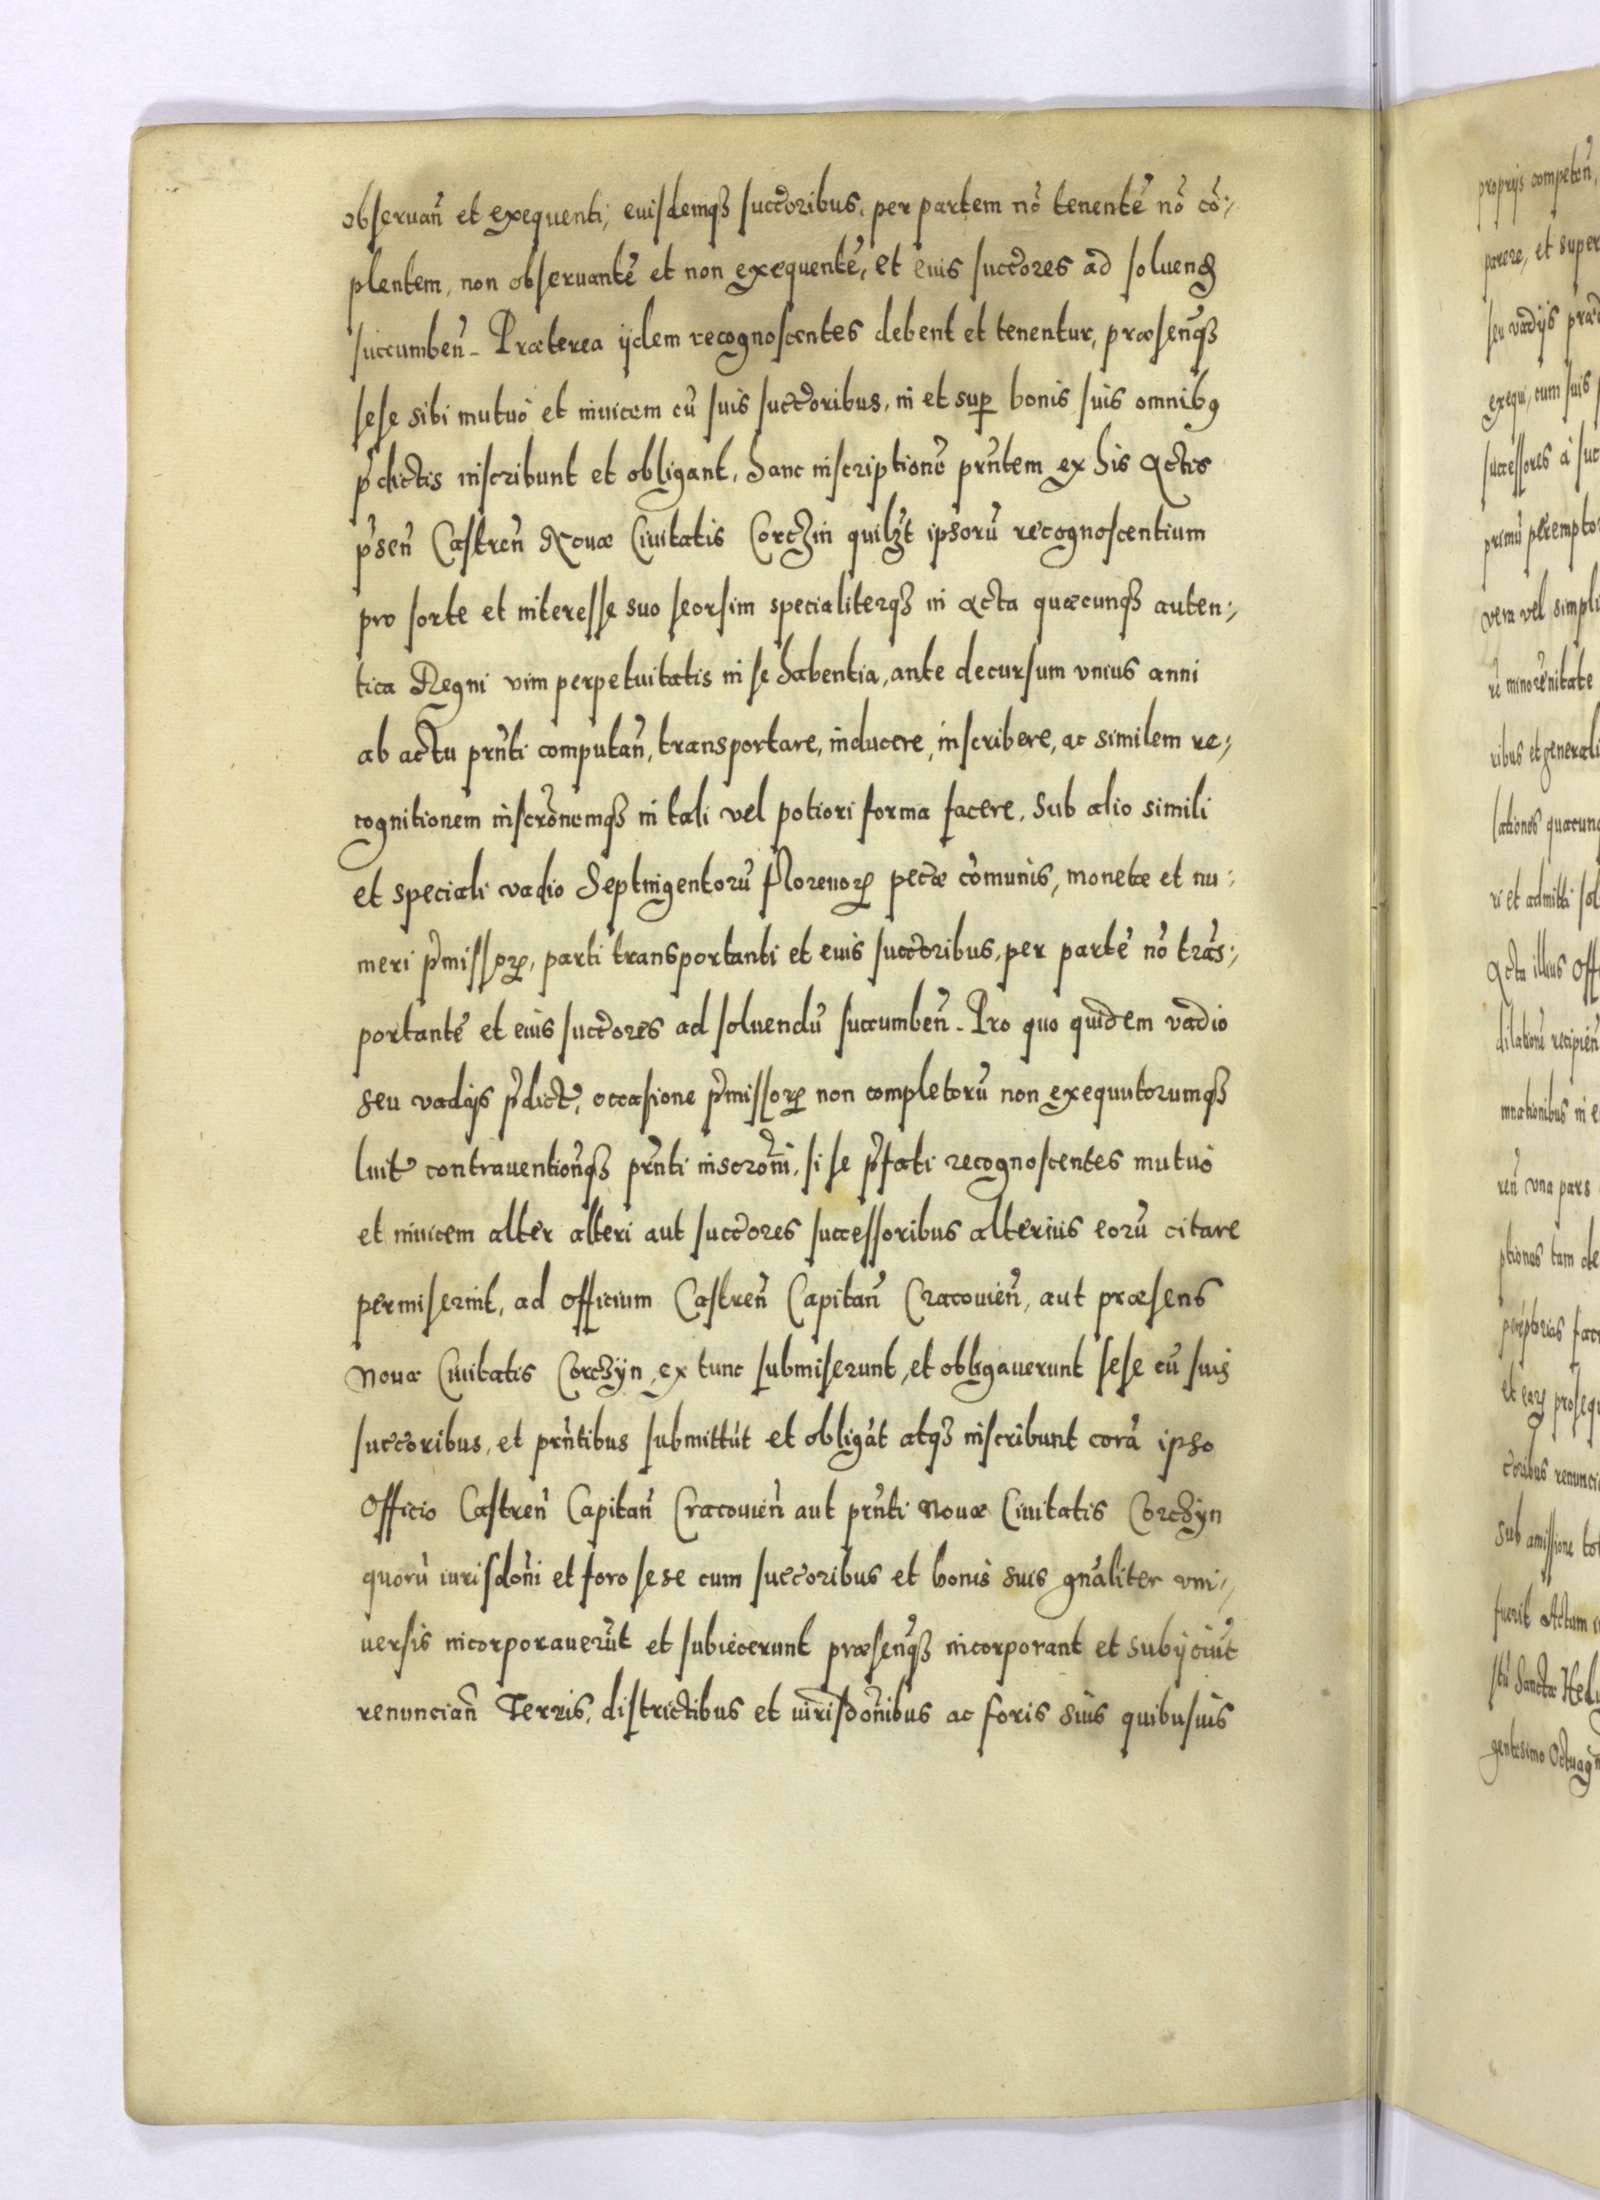 obseruan̄ et exequenti, euisdemqꝫ succ̄oribus, per partem nō tenentē nō cō-
plentem, non obseruantē et non exequentē, et euis succ̄ores ad soluend
succumben̄. Præterea ijdem recognoscentes debent et tenentur, præsen̄qꝫ
sese sibi mutuò et inuicem cū suis succ̄oribus, in et suꝑ bonis suis omnibꝰ
p̄dictis inscribunt et obligant, hanc inscriptionē prn̄tem ex his Actis
p̄sen̄ Castren̄ Nouæ Ciuitatis Corczin quilꝫt ipsorū recognoscentium
pro sorte et interesse suo seorsim specialiterqꝫ in Acta quæcunqꝫ auten-
tica Regni vim perpetuitatis in se habentia, ante decursum vnius anni
ab actu prn̄ti computan̄, transportare, inducere, inscribere, ac similem re-
cognitionem inscrōnemqꝫ in tali vel potiori forma facere, sub alio simili
et speciali vadio Septingentorū florenoꝝ pec̄æ cōmunis, monetæ et nu-
meri p̄missoꝝ, parti transportanti et euis succ̄oribus, per partē nō trās-
portantē et euis succ̄ores ad soluendū succumben̄. Pro quo quidem vadio
seu vadijs p̄dict, occasione p̄missoꝝ non completorū non exequutorumqꝫ
luit contrauention̄qꝫ prn̄ti inscrōni, si se p̄fati recognoscentes mutuò
et inuicem alter alteri aut succ̄ores successoribus alterius eorū citare
permiserint, ad officium Castren̄ Capitan̄ Cracouien̄, aut præsens
Nouæ Ciuitatis Corczyn, ex tunc submiserunt, et obligauerunt sese cū suis
succ̄oribus, et prn̄tibus submittūt et obligāt atqꝫ inscribunt corā ipso
Officio Castren̄ Capitan̄ Cracouien̄ aut prn̄ti Nouæ Ciuitatis Corczyn
quorū iurisdōni et foro sese cum succ̄oribus et bonis suis gn̄aliter vni-
uersis incorporauerūt et subiecerunt præsen̄qꝫ incorporant et subijciūt
renuncian̄ Terris, districtibus et iurisdōnibus ac foris suis quibusuis
proprijs competen̄,
parere, et super
seu vadijs
exequi, cum suis
successores à
primū
vera vel
minorēnitate
ribus et
lationes
ri et admitti
Acta illius
dilationē
in
ren̄ vna pars
ptiones tam de
et
c̄oribus
sub amissione
fuerit Actum
Sanctæ
gentesimo